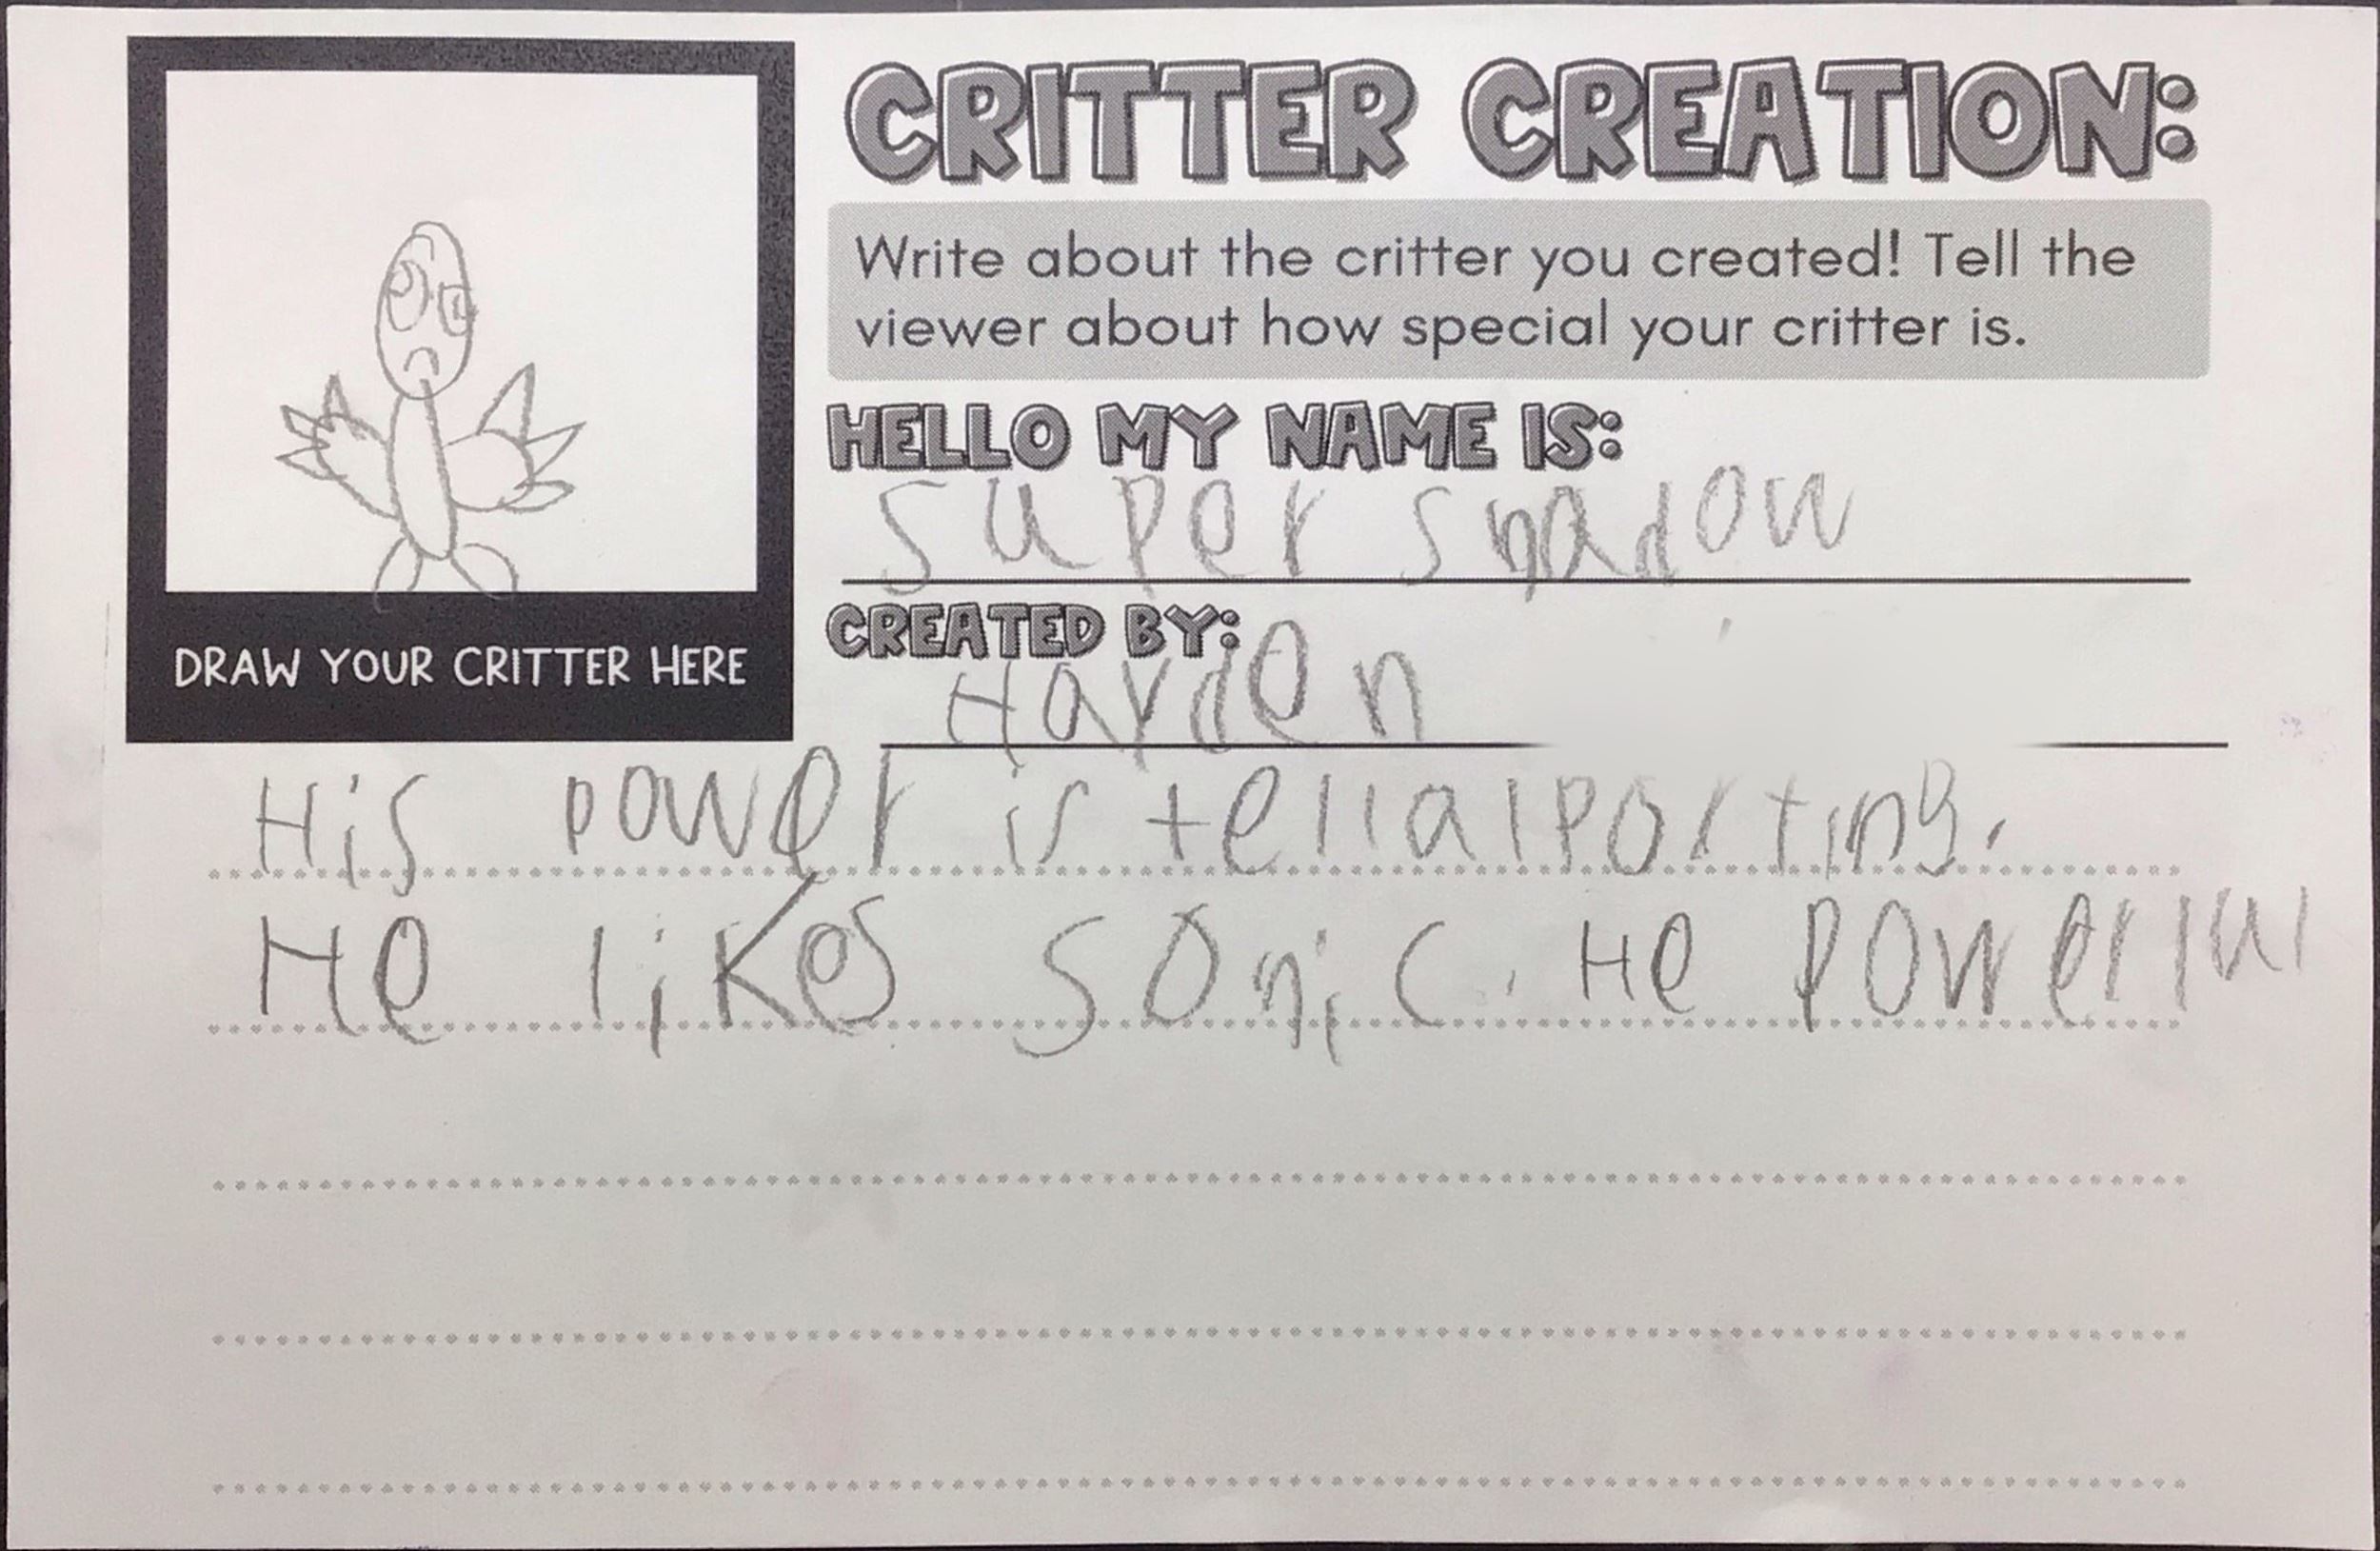 CRITTER CREATION:
Write about the critter you created! Tell the
viewer about how special your critter is.
HELLO MY NAME IS:
Super Shadow
CREATED BY:
Hayden
DRAW YOUR CRITTER HERE
His power is tellalporting.
He likes Sonic. He powerful